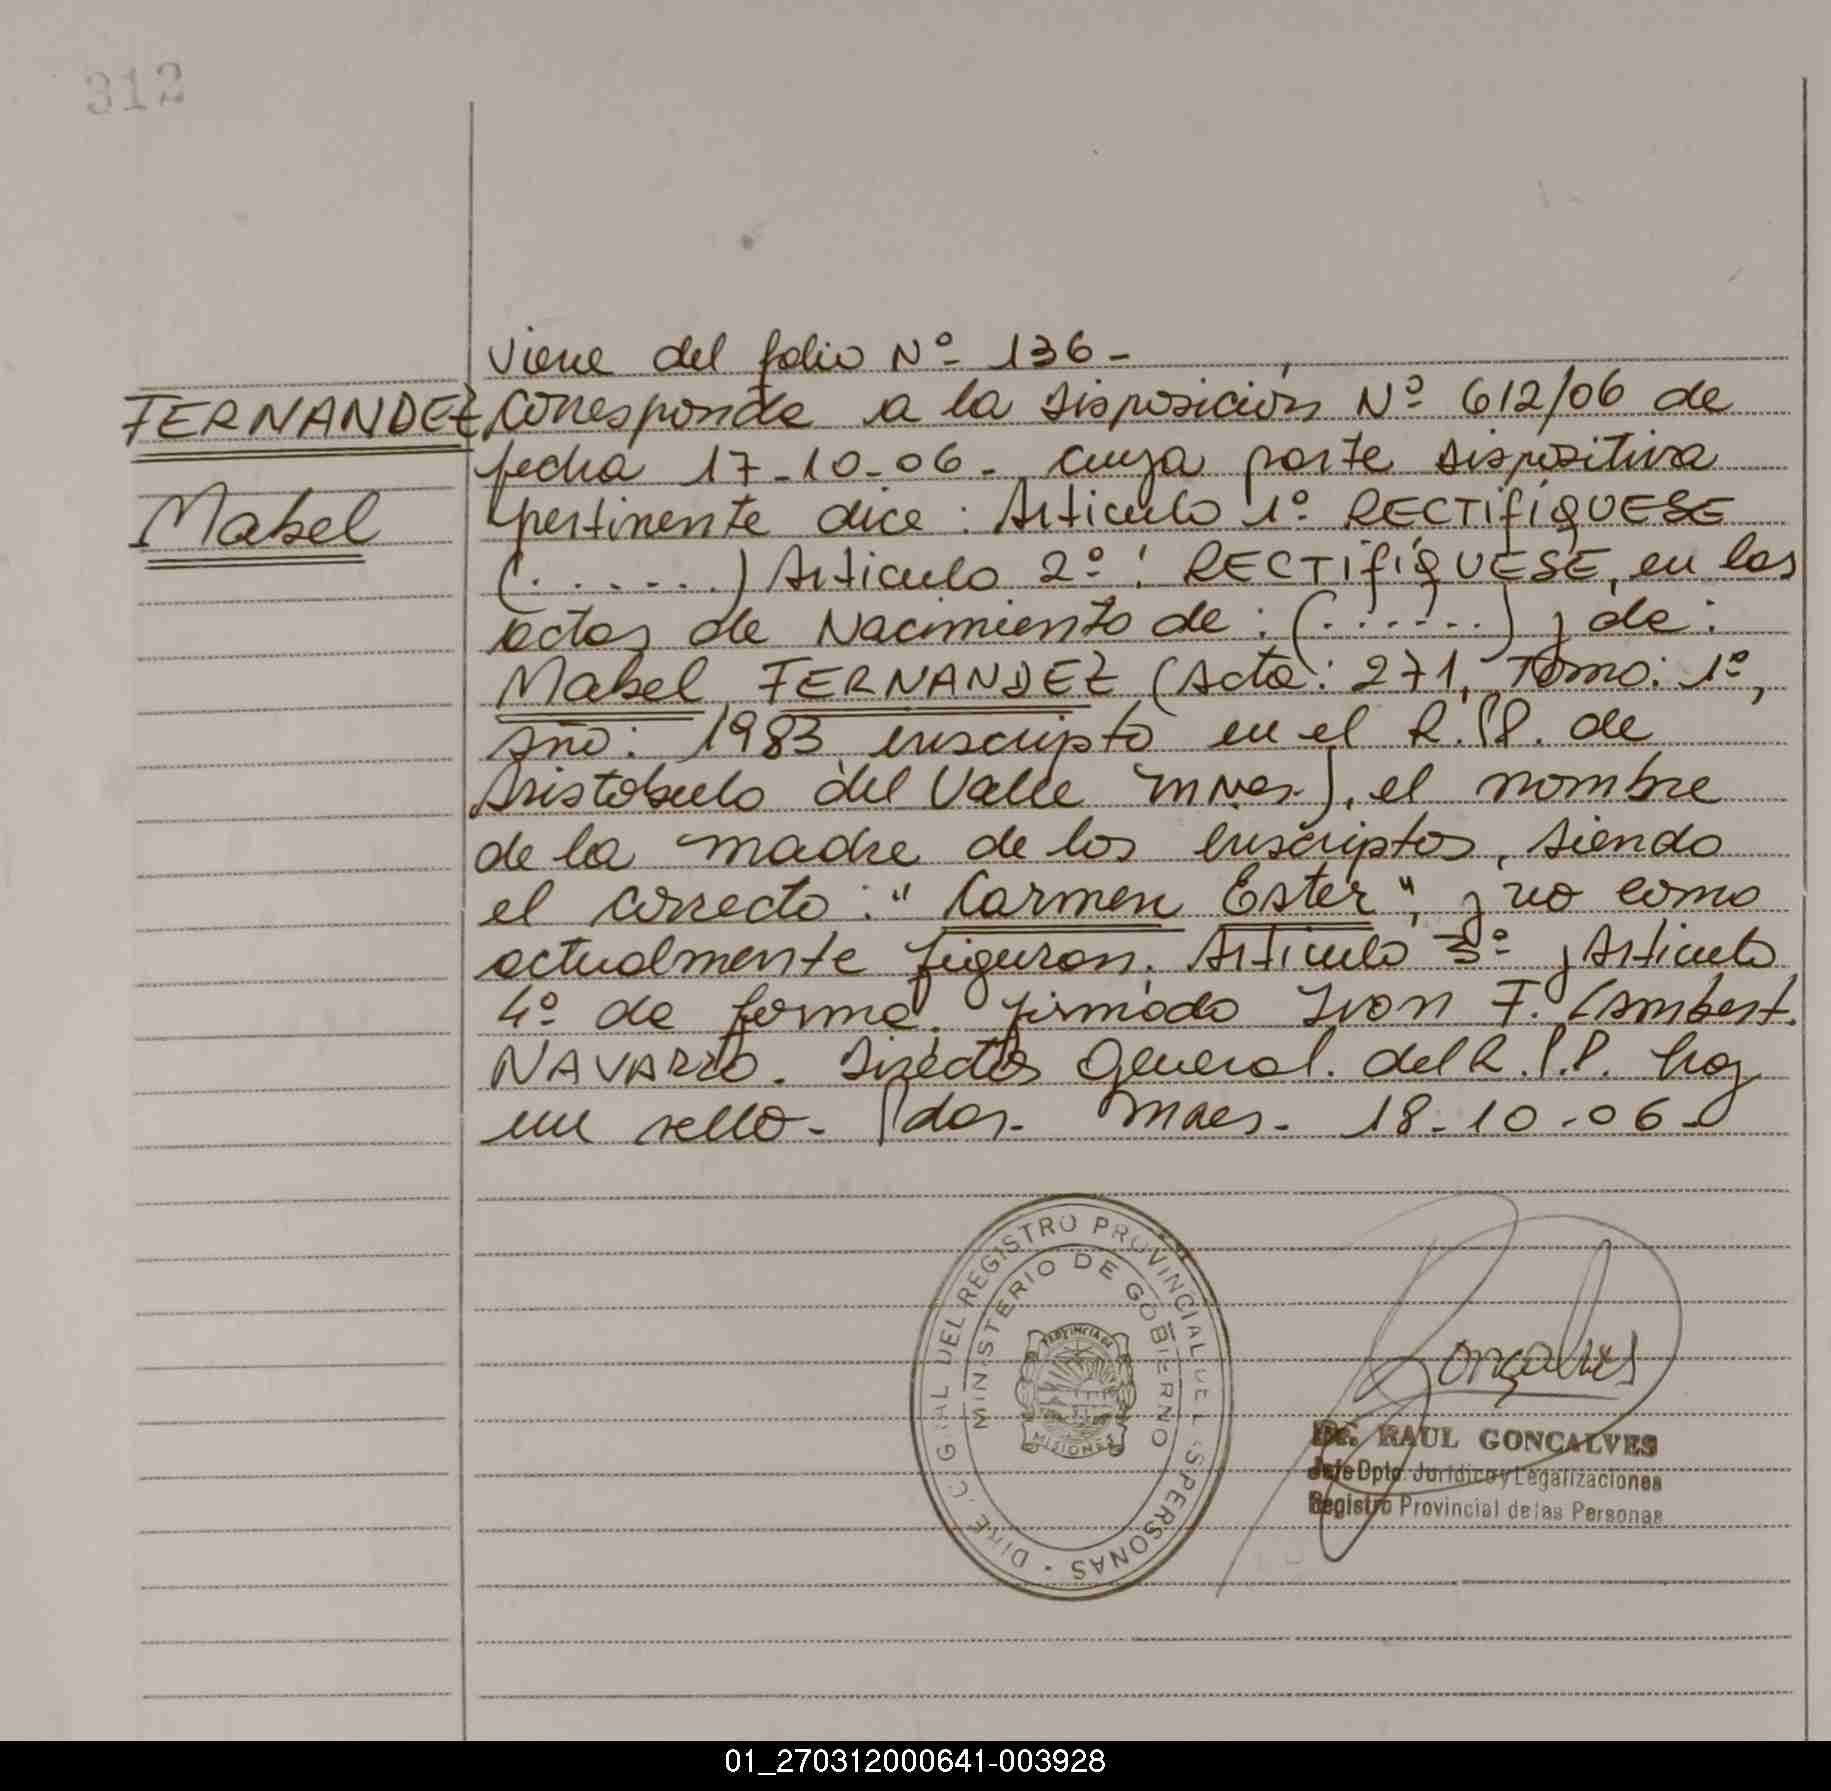 312
Viene del folio Nº 136-
FERNANDEZ
Mabel
Corresponde a la Disposición Nº 612/06 de
fecha 17-10-06- cuya parte dispositiva
pertinente dice: Articulo 1º RECTIFÍQUESE
(.......) Articulo 2º: RECTIFÍQUESE, en las
actas de Nacimiento de: (......) y de:
Mabel FERNANDEZ (Acta: 271, Tomo: 1º,
Año: 1983 inscripto en el R.P.P. de
Aristobulo del Valle Mnes.), el nombre
de la madre de los inscriptos, siendo
el correcto: "Carmen Ester", y no como
actualmente figuran. Articulo 3º y Articulo
4º de forma. firmado Ivon F. Lambert.
NAVARRO. Director General. del R.P.P. hay
un sello- Pdas. Mnes- 18-10-06-
DIRECC GRAL DEL REGISTRO PROVINCIAL DE LAS PERSONAS -
MINISTERIO DE GOBIERNO
PROVINCIA DE
MISIONES
Gonçalves
Dr. RAUL GONCALVES
Jefe Dpto. Jurídico y Legalizaciones
Registro Provincial de las Personas
01_270312000641-003928